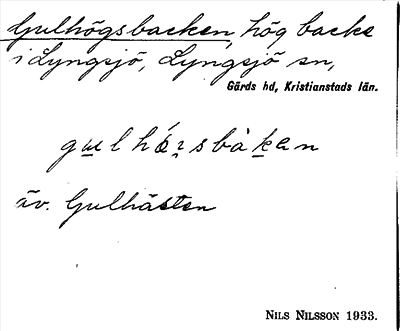 Gulhögsbacken, hög backe
i Lyngsjö, Lyngsjö sn,
Gärds hd, Kristianstads län.
äv. Gulhästen
NILS NILSSON 1933.